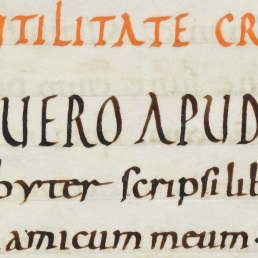 UTILITATE CR
UERO APUD
byter scripsi lib
amicum meum.